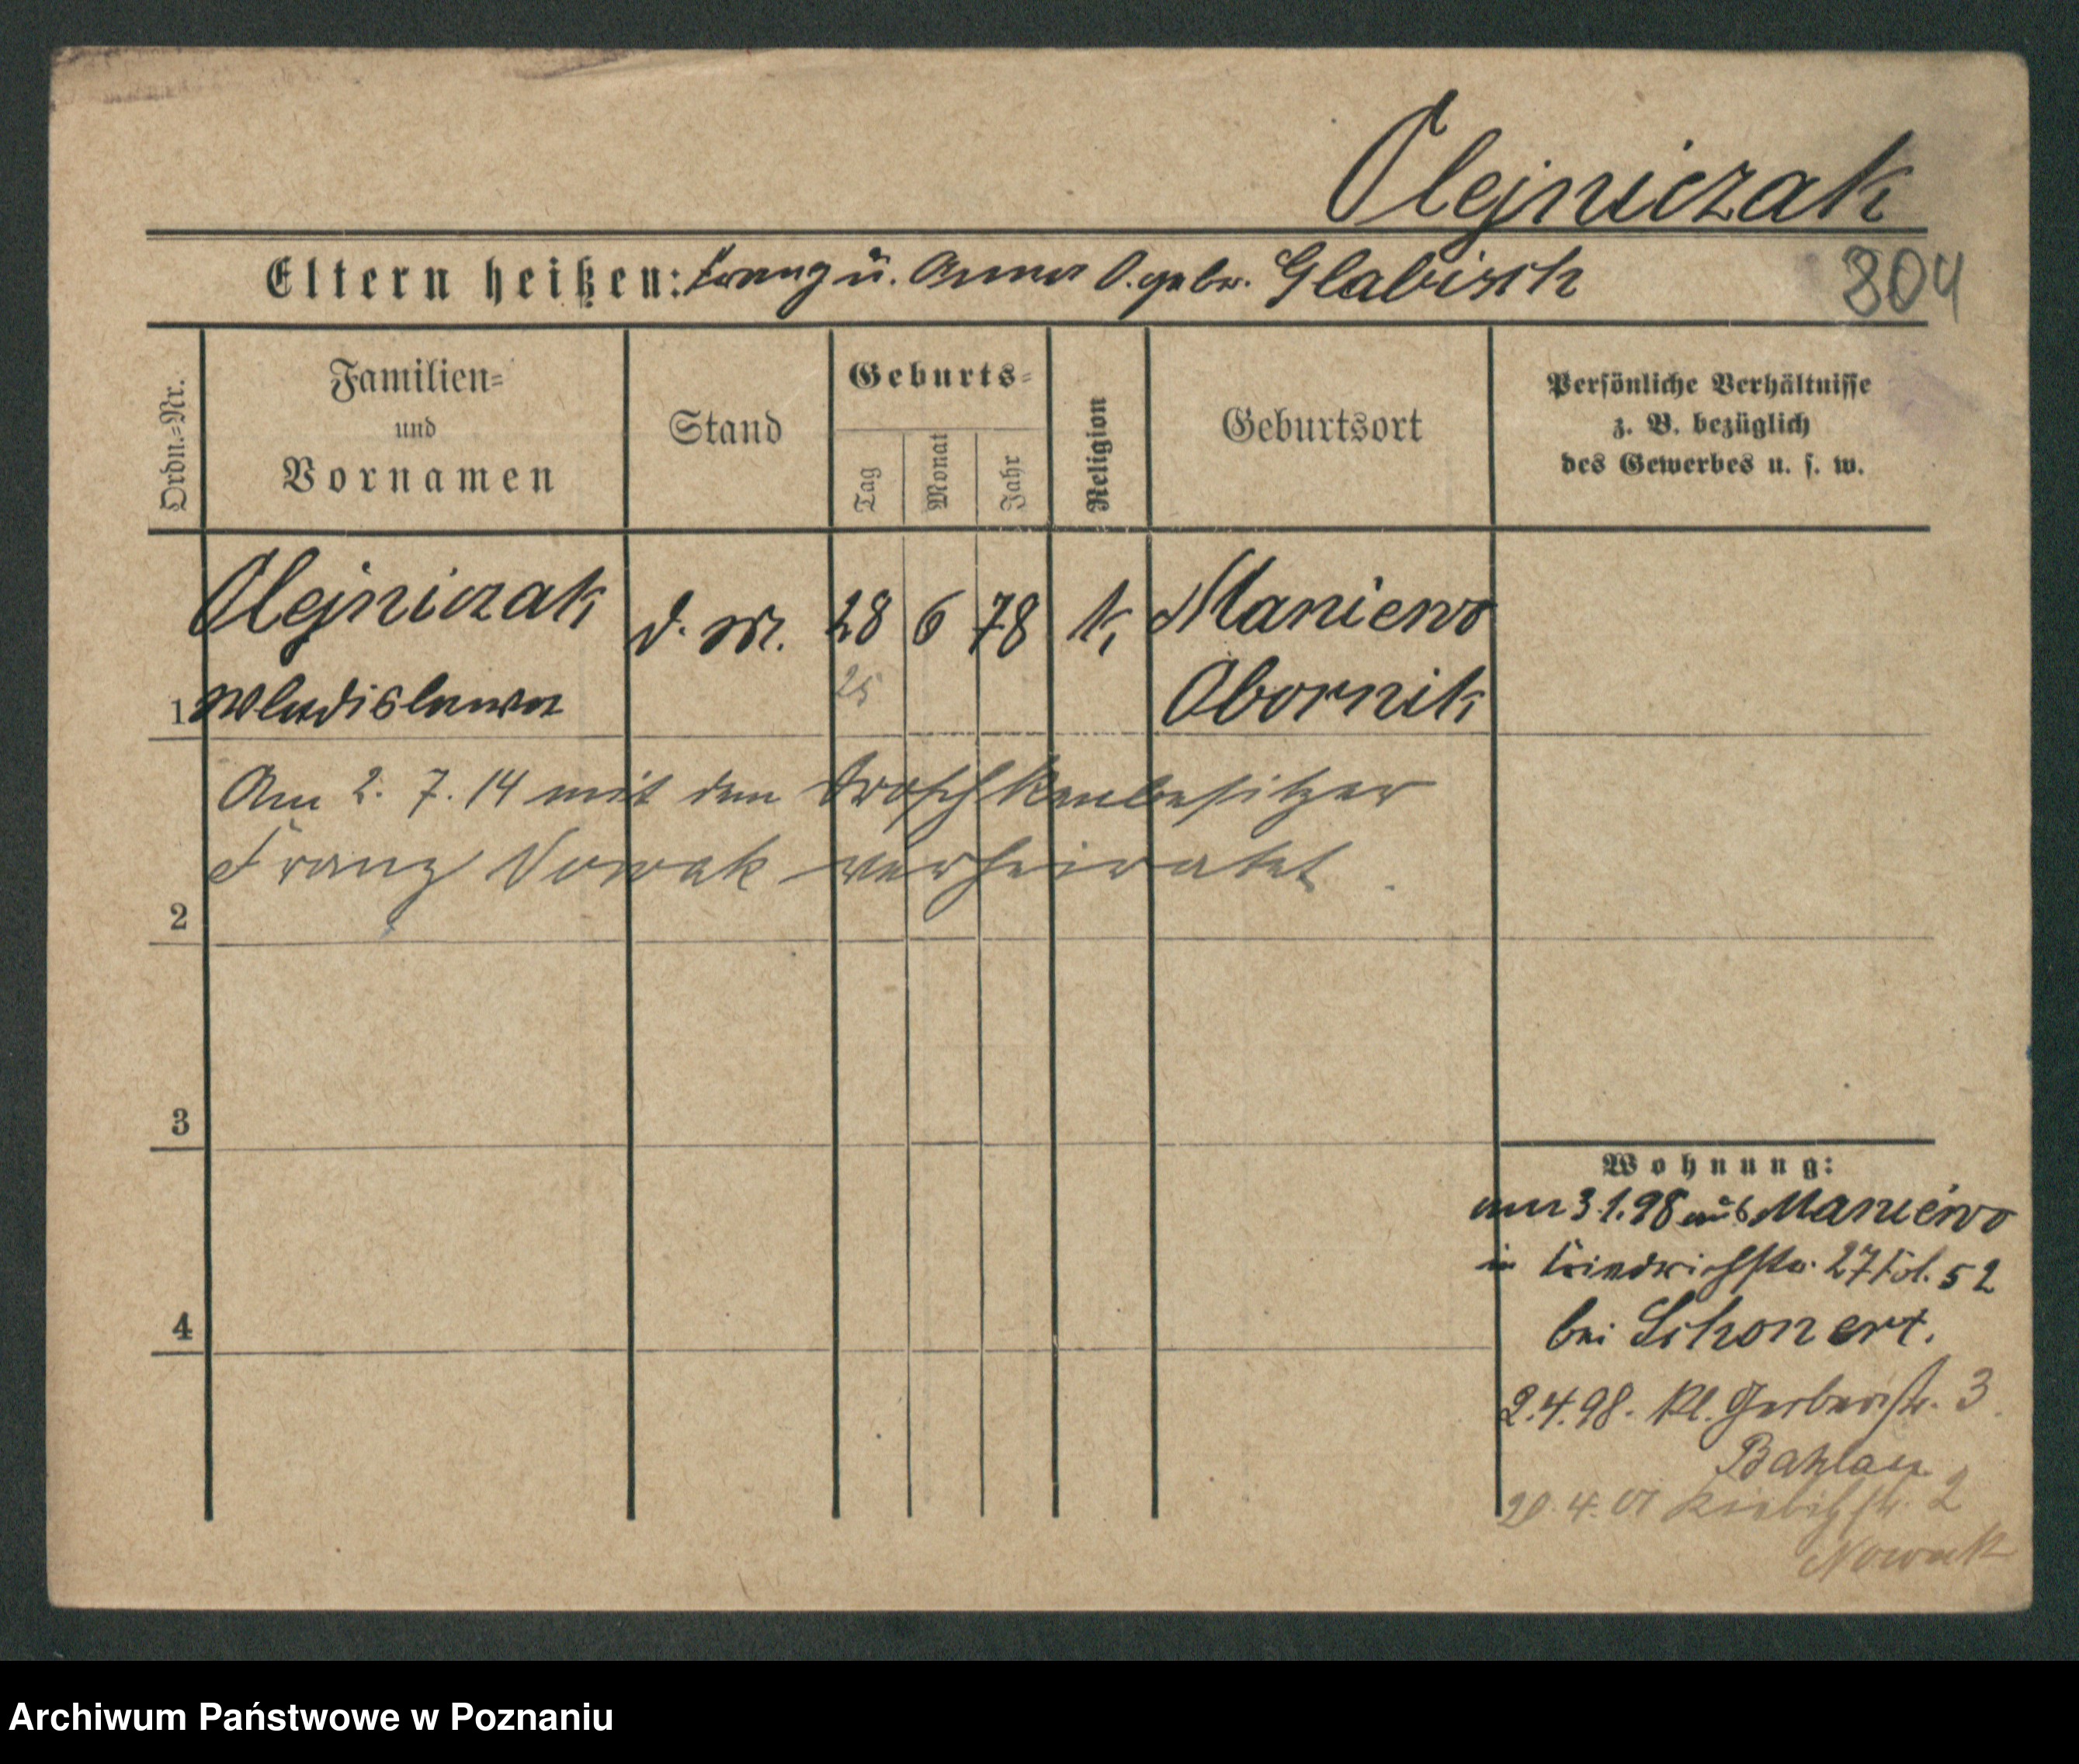 Olejniczak
Eltern heißen: Franz u. Anna O. gebr. Glabisch
804
Ordn.=Nr.
Familien=
und
Vornamen
Stand
Geburts=
Tag
Monat
Jahr
Religion
Geburtsort
Persönliche Verhältnisse
z. B. bezüglich
des Gewerbes u. s. w.
Olejniczak d. M. 28 6 78 k. Maniewo
1 Wladislawa 25 Obornik
Am 2. 7. 14 mit dem Droschkenbesitzer
Franz Nowak verheiratet.
2
3
4
Wohnung:
am 3.1.98 aus Maniewo
in Friedrichstr. 27 Fol. 52
bei Schonert.
2.4.98. Kl. Gerberstr. 3
20.4.01 str. 2
Nowak
Archiwum Państwowe w Poznaniu